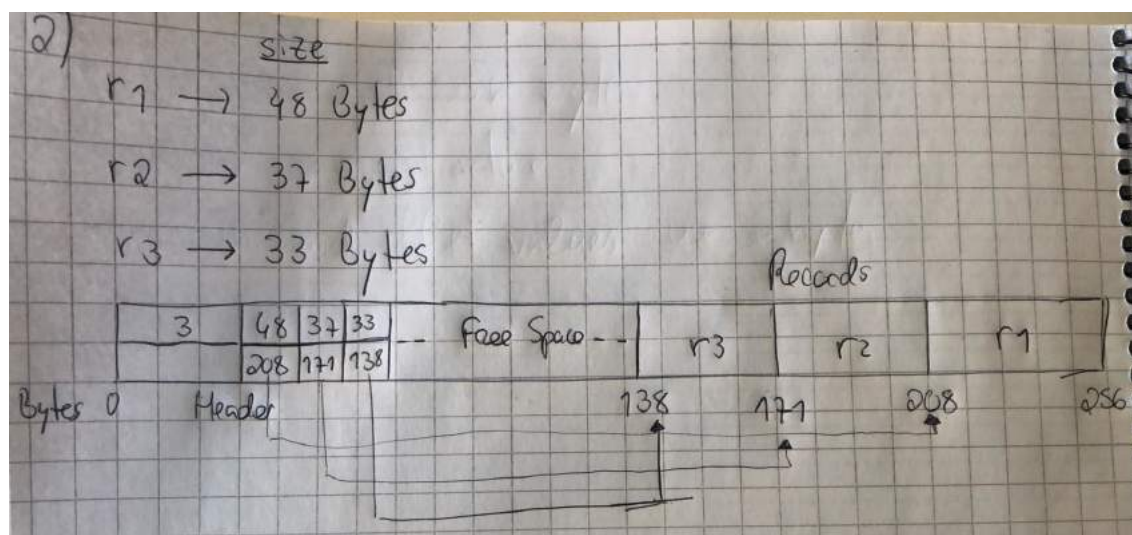 2)
size
r1 → 48 Bytes
r2 → 37 Bytes
r3 → 33 Bytes
Records
3 48 37 33 -- Free Space -- r3 r2 r1
208 171 138
Bytes 0 Header 138 171 208 256